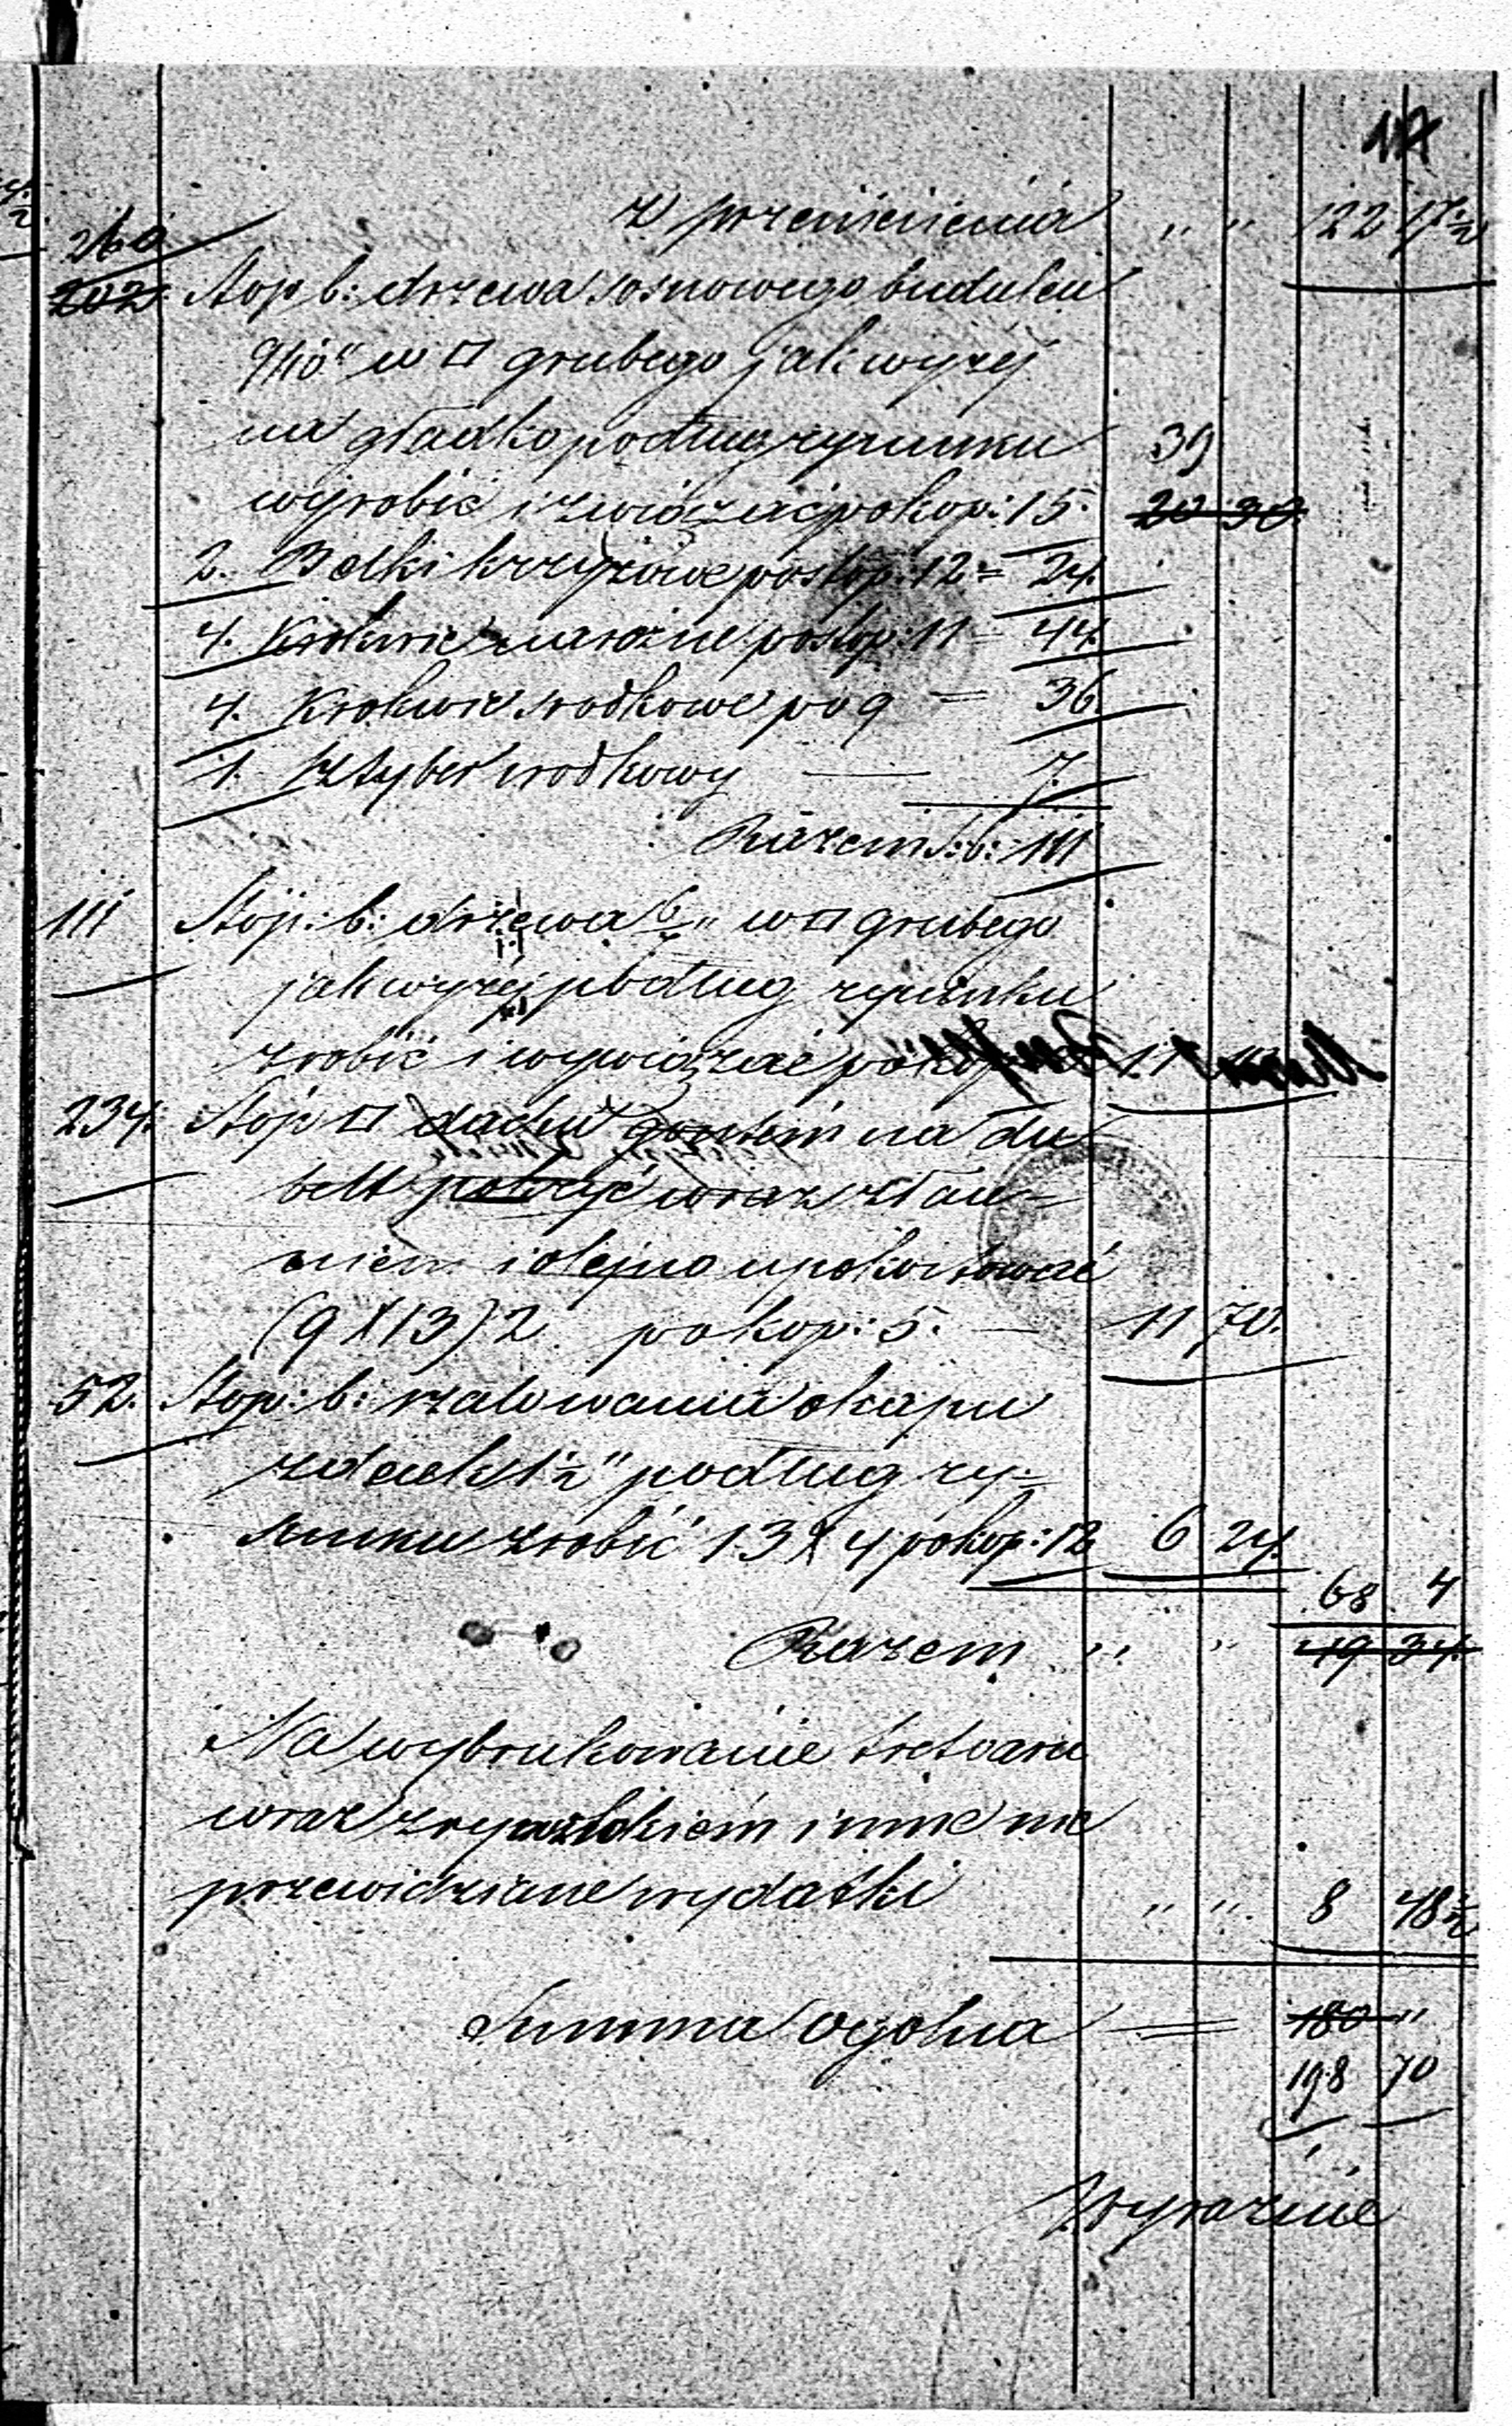 117
z przeniesienia " " 122 17 1/2
260
202. Stop b: drzewa sosnowego budulcu
9/10" w □ grubego jak wyżej
na gładko podług rysunku 39
wyrobić i zwiózać po kop: 15. 20 30
2. Belki krzyżowe po stop: 12 = 24.
4. Krokwie narożne po stop: 11 = 44.
4. Krokwie srodkowe po 9 = 36.
1. sztyber srodkowy — 7.
Razem s: b: 111
111 Stop: b: drzewa 6/ " w □ grubego
jak wyżej podług rysunku
zrobić i wywiązać po kop 11
234. Stop □ dachu gontem na du
belt pokryć wraz z łace-
niem i olejno upokostować
(9 X 13) 2 po kop: 5. — 11 70.
52. Stop: b: szalowania okapu
z desek 1 1/2" podług ry-
sunku zrobić 13 X 4 po kop: 12 6 24.
68 4
Razem " " 49 34.
Na wybrukowanie tretoaru
wraz z inne nie
przewidziane wydatki " " 8 48 1/2
Summa ogolna = 180 "
198 70
Wyraźnie